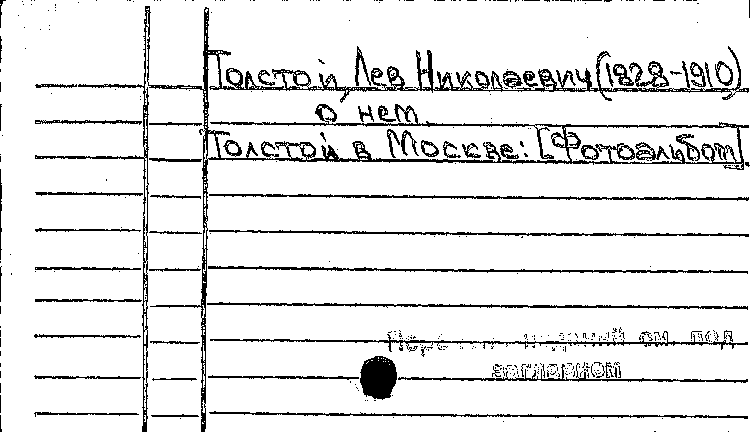 Толстой, Лев Николаевич (1828-1910)
о нем.
Толстой в Москве: [Фотоальбом].
см. под
заглавием